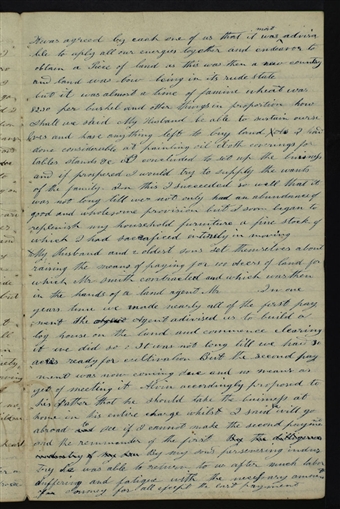 It was agreed by each one of us that it was most advisa
ble to aply all our energies together and endeavor to
obtain a Piece of land as this was then a new country
and land was low being in its rude state
but it was almost a time of famine wheat was
$2.50 per bushel and other things in proportion how
shall we said My Husband be able to sustain ourse
lves and have anything left to buy land said I have
done considerable at painting oil cloth coverings for
tables stands &c I concluded to set up the business
and if prospered I would try to supply the wants
of the family In this I succeeded so well that it
was not long till we not only had an abundance of
good and wholesome provision but I soon began to
replenish my household furniture a fine stock of
which I had sacrificed entirely in moving
My Husband and 2 oldest sons set themselves about
raising the means of paying for 100 acres of land for
which Mr smith contracted and which was then
in the hands of a land agent Mr In one
years time we made nearly all of the first pay
ment the Agent advised us to build a
log house on the land and commence clearing
it we did so It was not long till we had
acres ready for cultivation But the second pay
ment was now coming due and no means as
yet of meeting it Alvin accordingly proposed to
his Father that he should take the business at
home in his entire charge whilst I said will go
abroad to see if I cannot make the second payment
and the remainder of the first By the
of my son By my sons persevering indus
try he was able to return to us after much labor
suffering and fatigue with the necessary amount
of money for all except the last payment